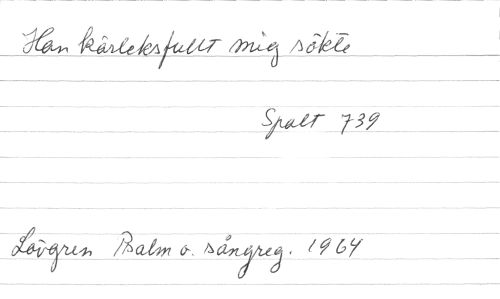 Han kärleksfullt mig sökte
Spalt 739
Lövgren Psalm o. sångreg. 1964